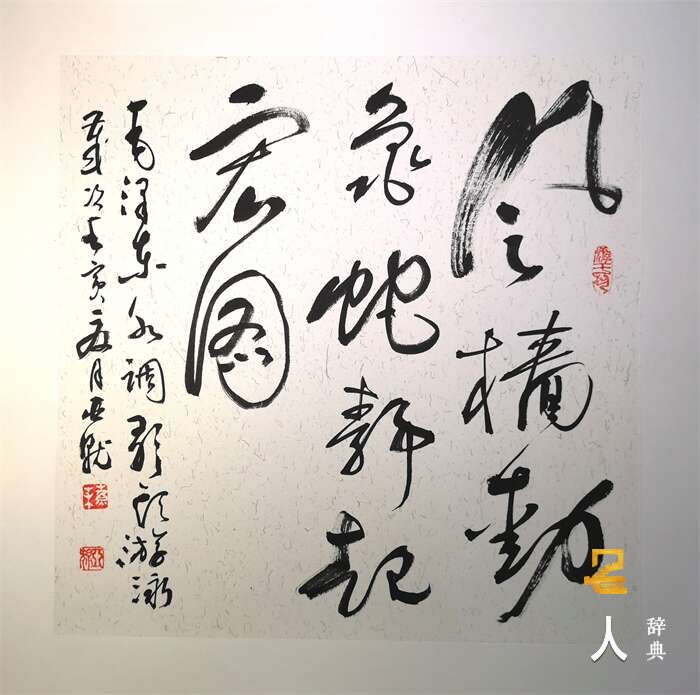 风樯动
龟蛇静起
宏图
毛泽东水调歌头游泳
岁次壬寅夏月亚
人
辞典